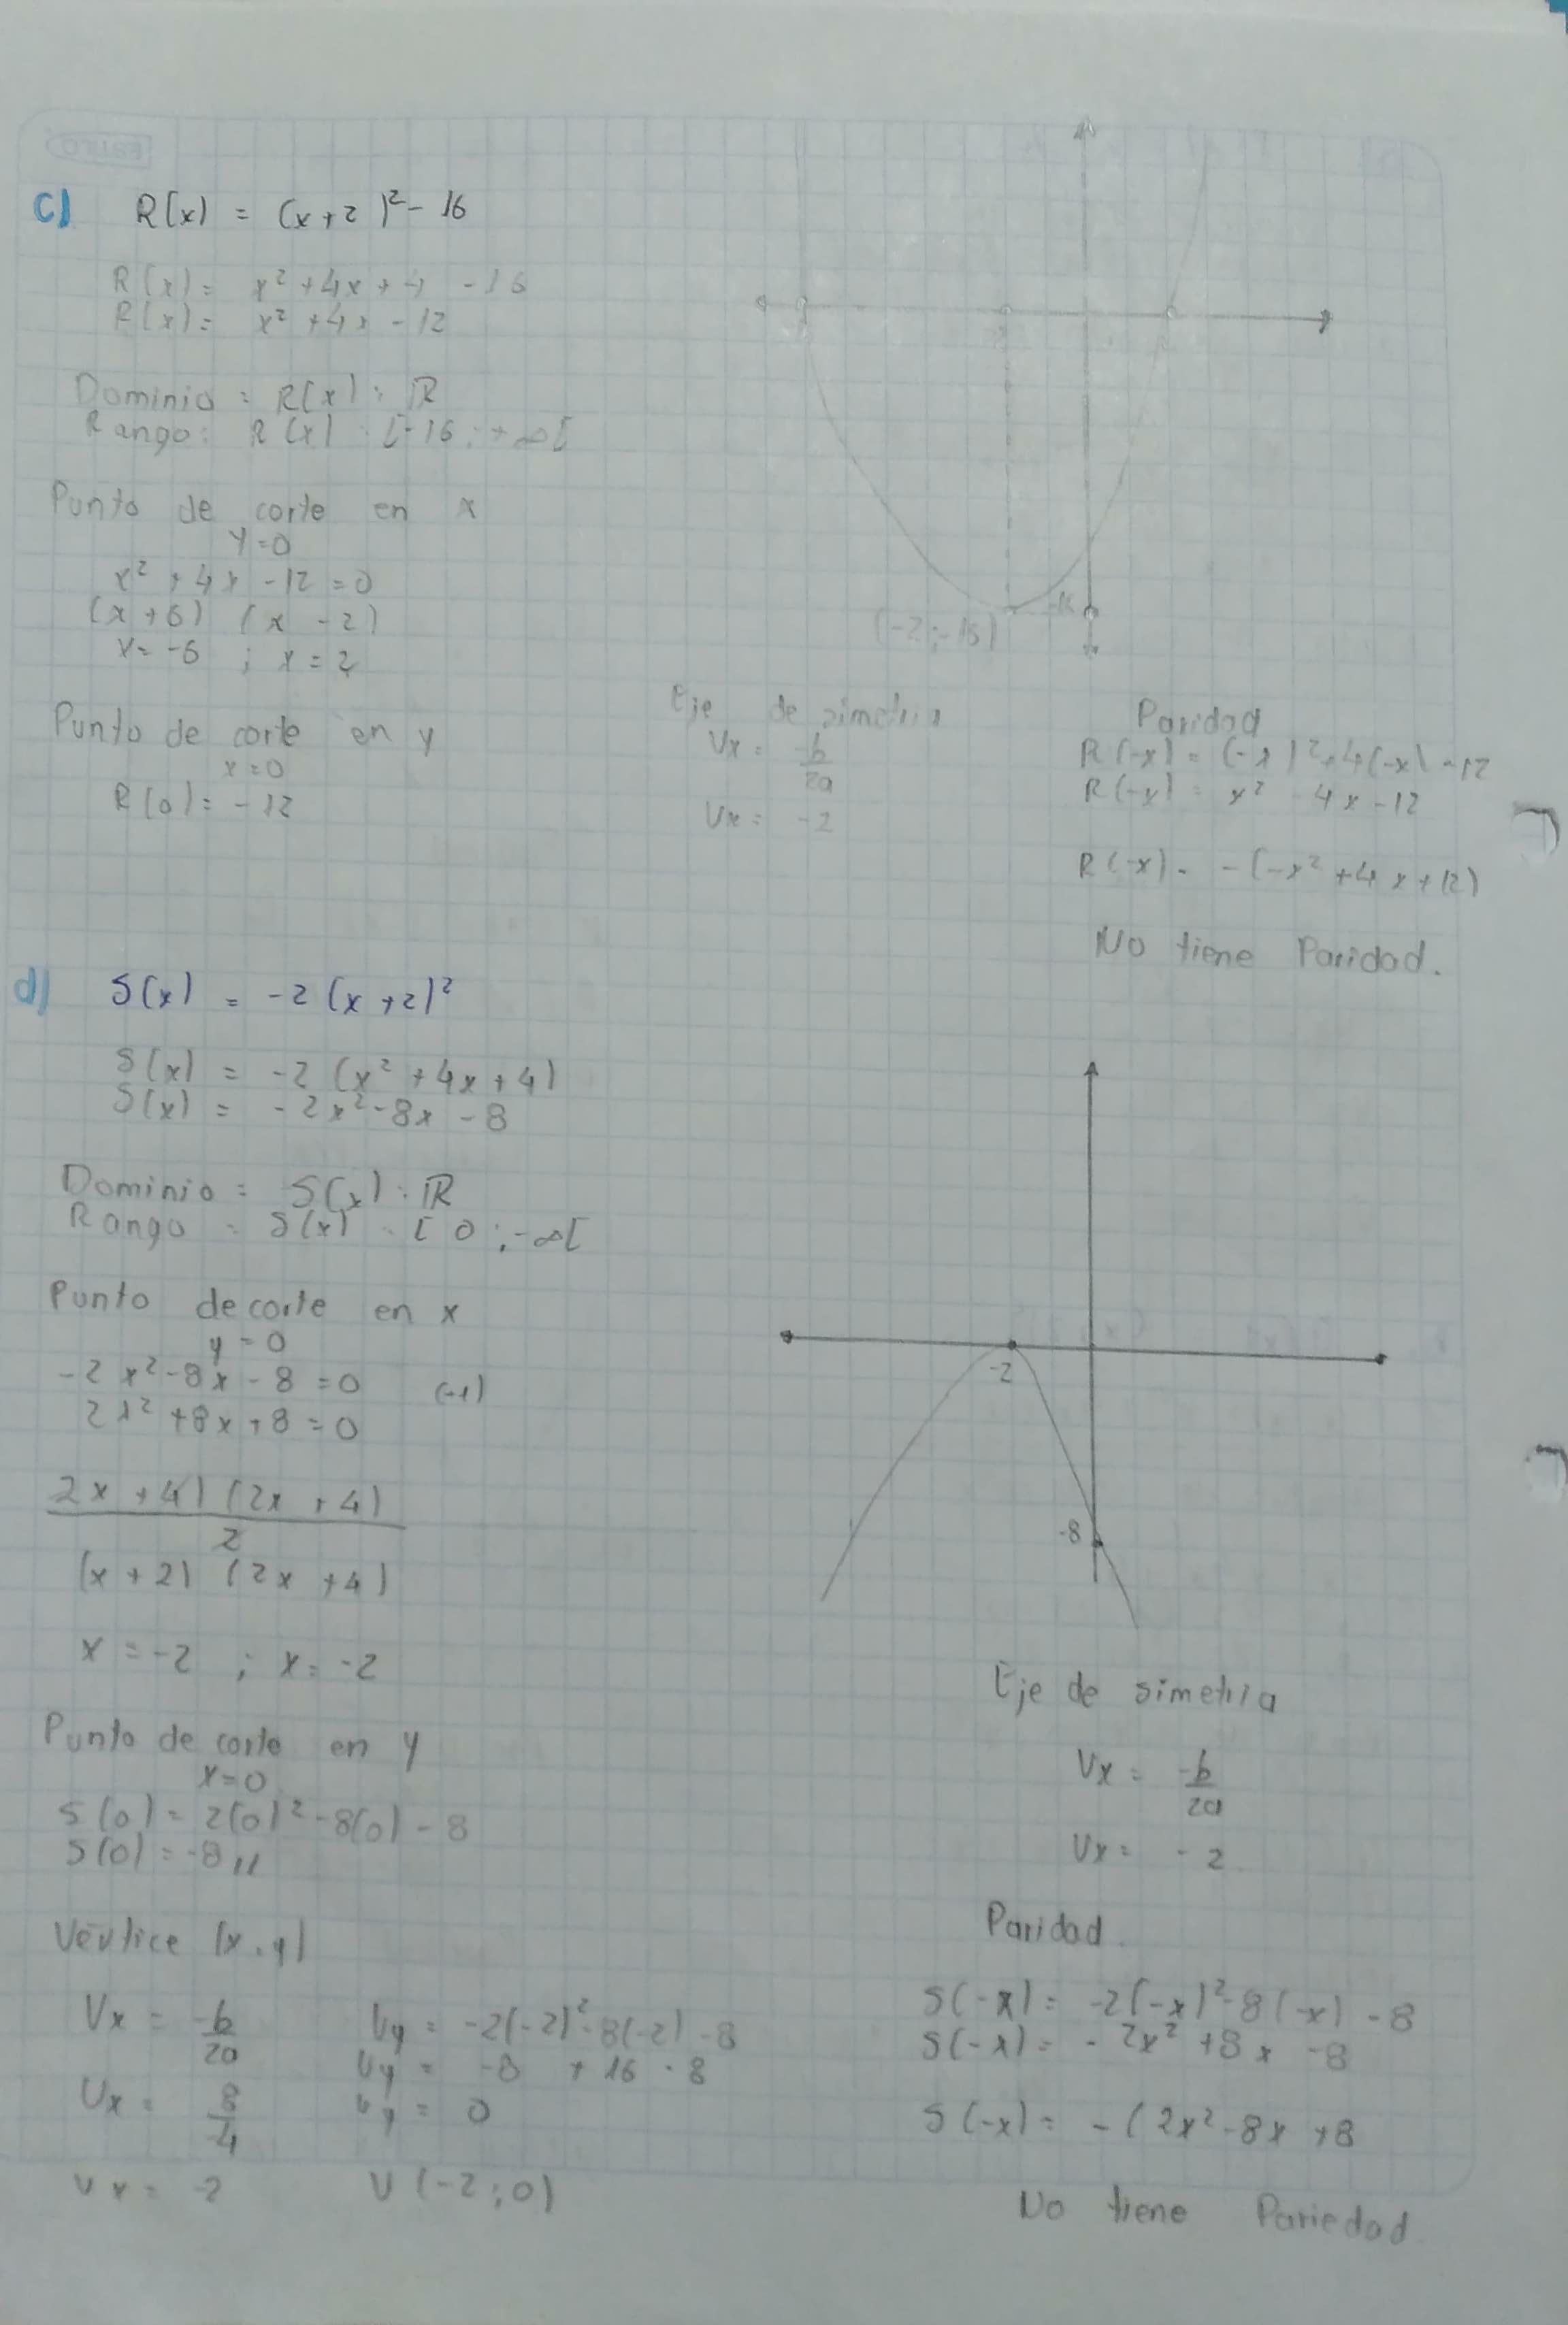 c) R(x) = (x+2)²- 16
R(x) = x² +4x + 4 - 16
R(x) = x² +4x - 12
Dominio = R(x) : ℝ
Rango: R(x) : [-16 ; +∞[
Punto de corte en x
y=0
x² + 4x - 12 = 0
(x + 6) (x - 2)
x = -6 ; x = 2
Punto de corte en y
x=0
R(0) = - 12
(-2 ; -16)
-16
Eje de simetria
Vx = -b/2a
Vx = -2
Paridad
R(-x) = (-x)² +4(-x) - 12
R(-x) = x² - 4x - 12
R(-x) = - (-x² + 4x + 12)
No tiene Paridad.
d) S(x) = -2 (x+2)²
S(x) = -2 (x² + 4x + 4)
S(x) = - 2x² - 8x - 8
Dominio = S(x) : ℝ
Rango = S(x) = [ 0 ; -∞[
Punto de corte en x
y = 0
-2x² - 8x - 8 = 0 (-1)
2x² + 8x + 8 = 0
2x + 4) (2x + 4)
2
(x + 2) (2x + 4)
x = -2 ; x = -2
Punto de corte en y
x=0
S(0) = 2(0)² - 8(0) - 8
S(0) = -8 //
Vértice (x,y)
Vx = -b/2a
Vx = 8/-4
Vx = -2
Vy = -2(-2)² - 8(-2) - 8
Vy = -8 + 16 - 8
Vy = 0
V (-2 ; 0)
-2
-8
Eje de simetria
Vx = -b/2a
Vx = - 2
Paridad.
S(-x) = -2(-x)² - 8(-x) - 8
S(-x) = - 2x² + 8x - 8
S(-x) = - (2x² - 8x + 8
No tiene Pariedad